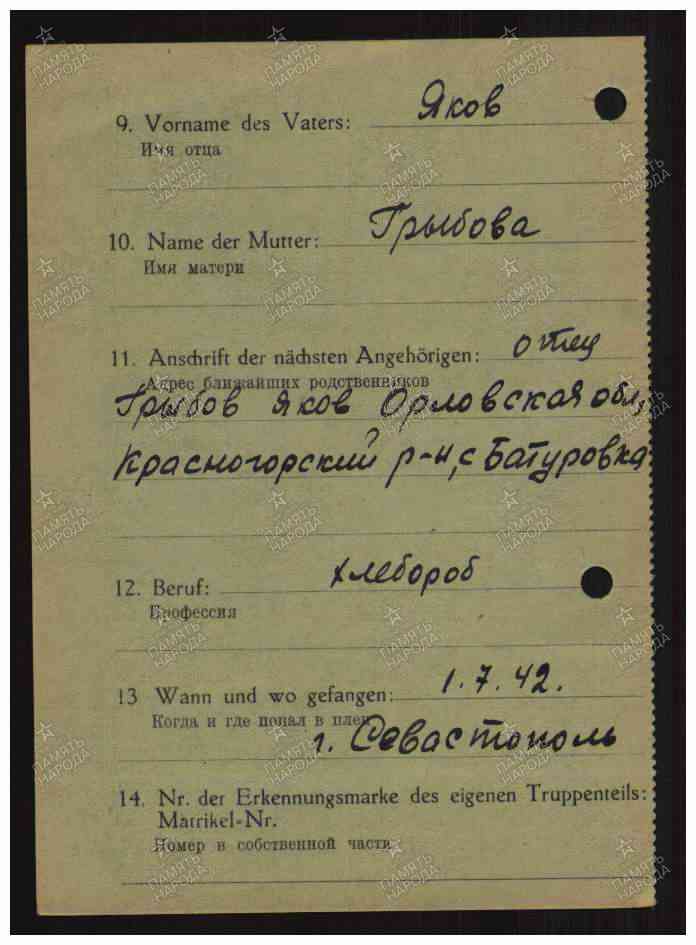 9. Vorname des Vaters: Яков
Имя отца
10. Name der Mutter: Грыбова
Имя матери
11. Anschrift der nächsten Angehörigen: отец
Адрес ближайших родственников
Грыбов Яков Орловская обл,
Красногорский р-н, с Батуровка
12. Beruf: хлебороб
Профессия
13 Wann und wo gefangen: 1.7.42.
Когда и где попал в плен
г. Севастополь
14. Nr. der Erkennungsmarke des eigenen Truppenteils:
Matrikel-Nr.
Номер в собственной части
ПАМЯТЬ НАРОДА